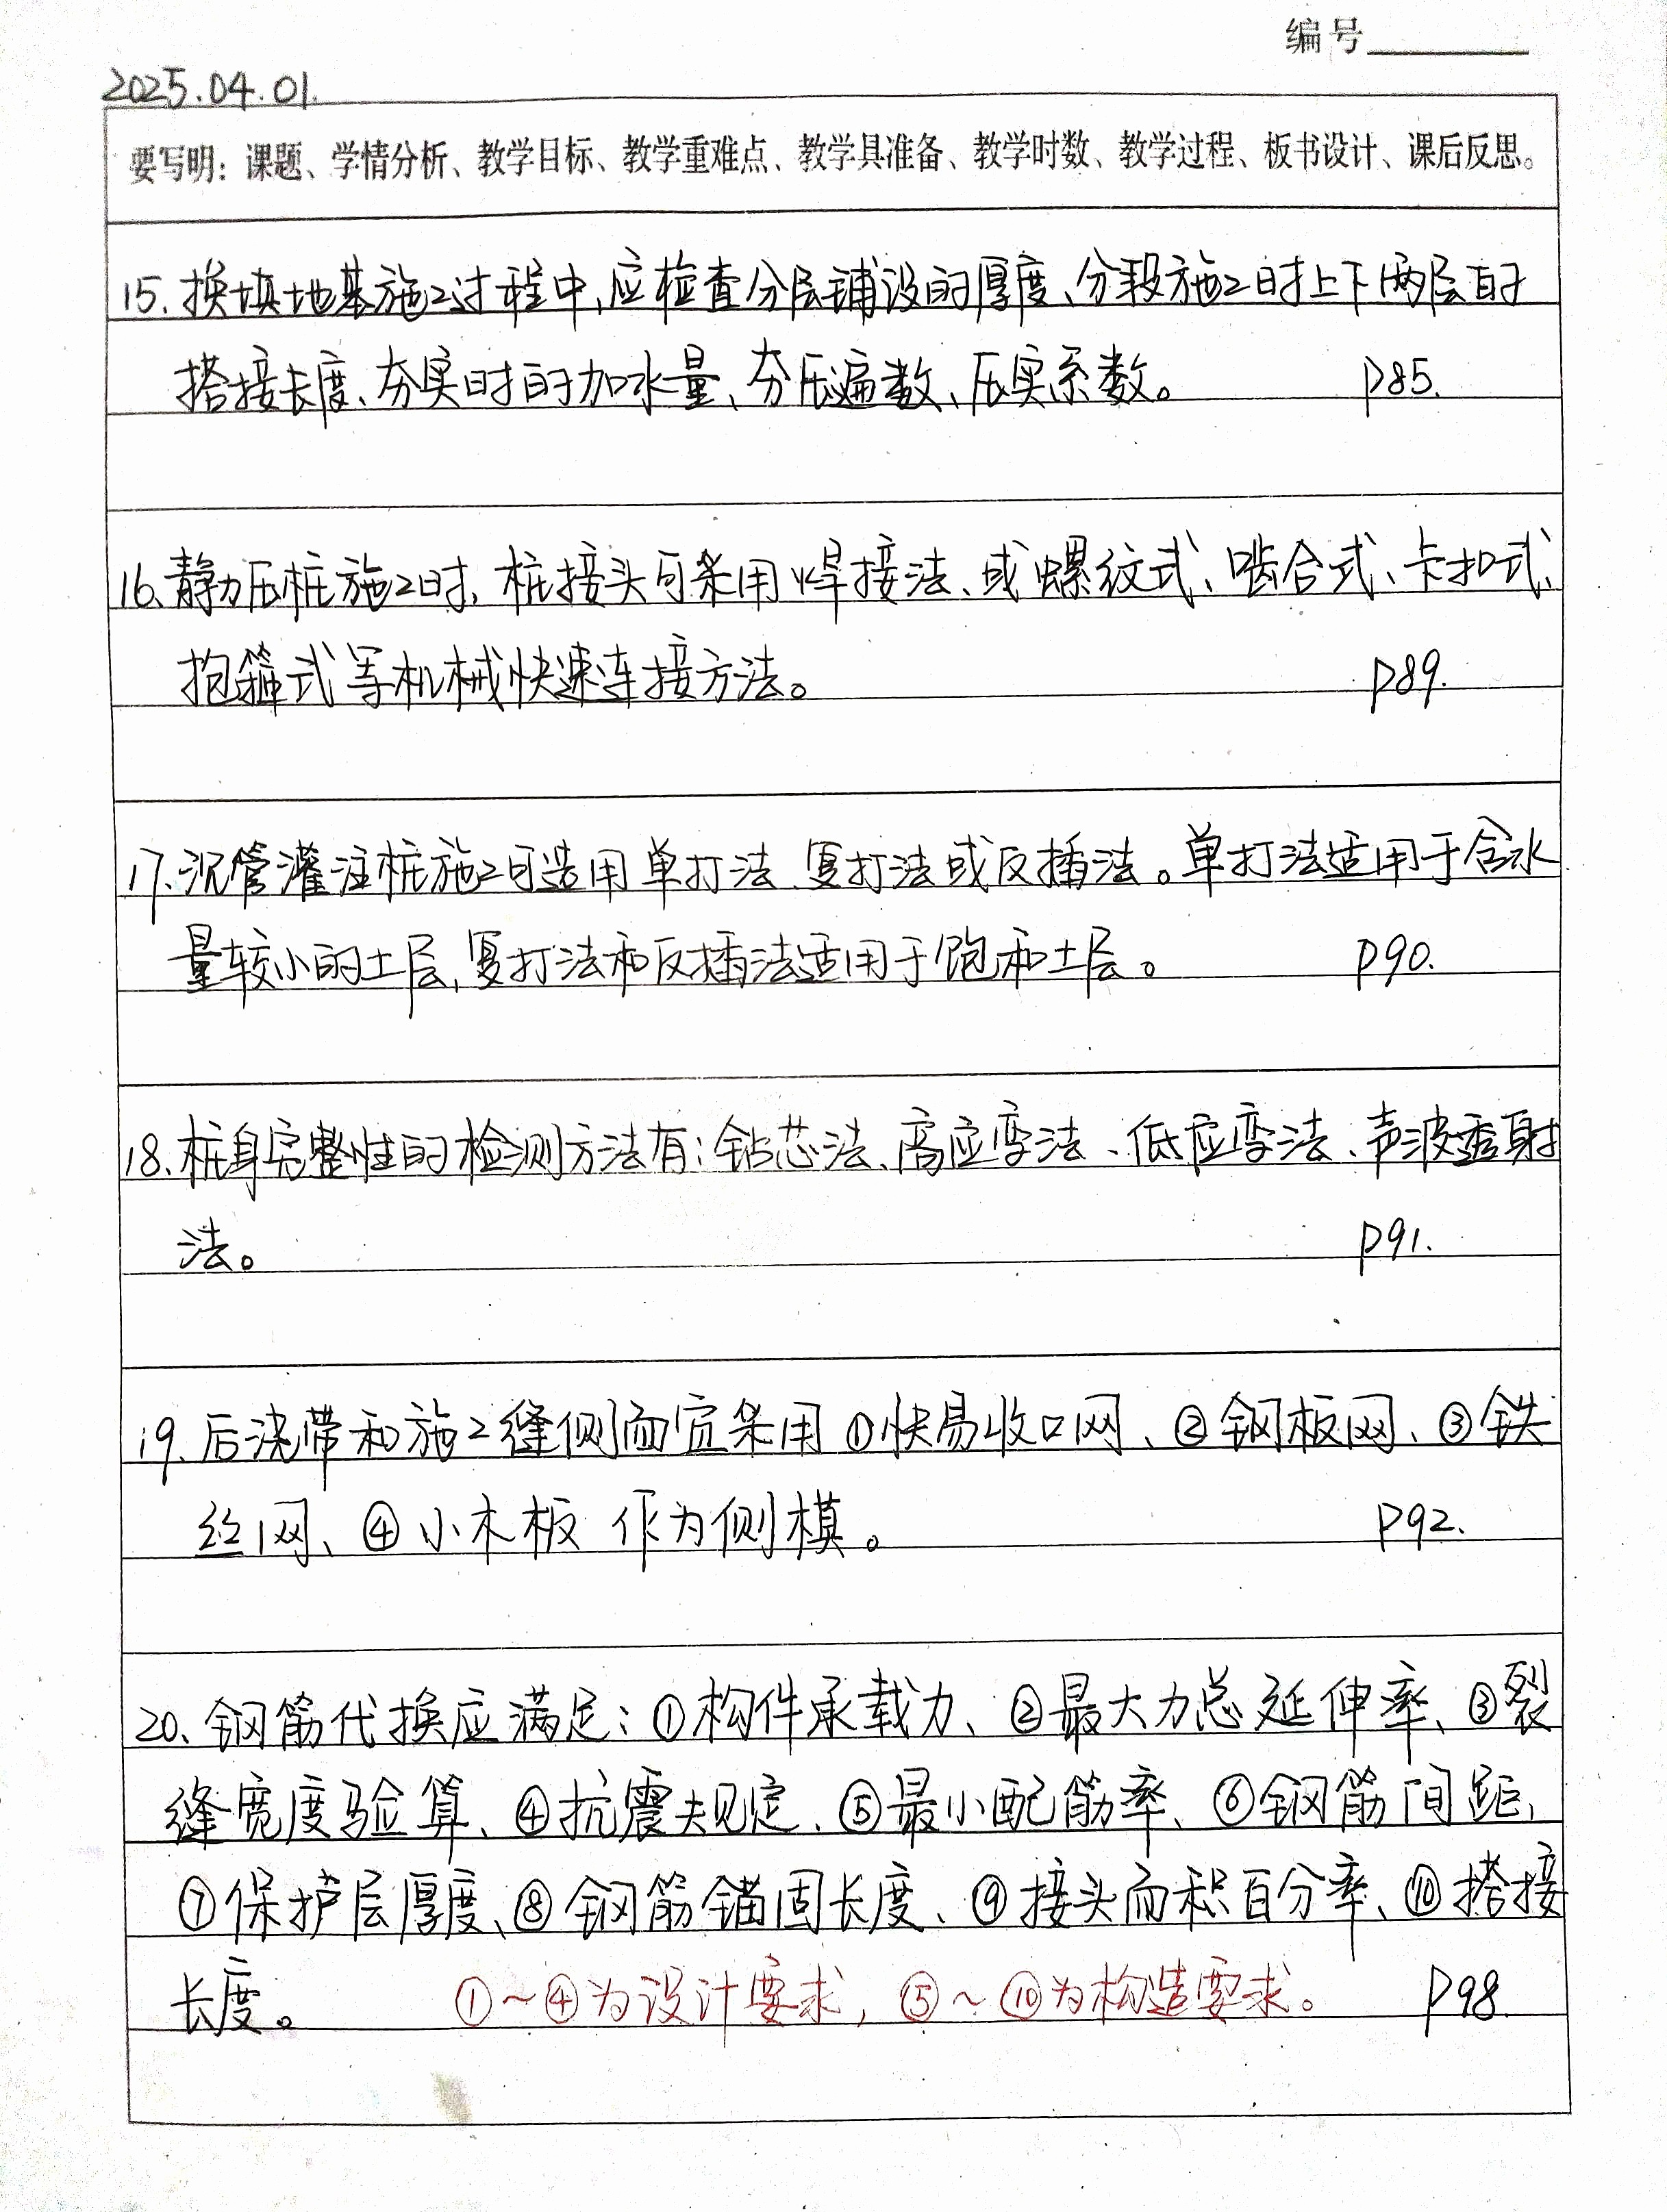 编号
2025.04.01.
要写明：课题、学情分析、教学目标、教学重难点、教学具准备、教学时数、教学过程、板书设计、课后反思。
15、换填地基施工过程中，应检查分层铺设的厚度、分段施工时上下两层的
搭接长度、夯实时的加水量、夯压遍数、压实系数。 P85.
16、静力压桩施工时，桩接头可采用焊接法、或螺纹式、啮合式、卡扣式、
抱箍式等机械快速连接方法。 P89.
17、沉管灌注桩施工可选用单打法、复打法或反插法。单打法适用于含水
量较小的土层，复打法和反插法适用于饱和土层。 P90.
18、桩身完整性的检测方法有：钻芯法、高应变法、低应变法、声波透射
法。 P91.
19、后浇带和施工缝侧面宜采用①快易收口网、②钢板网、③铁
丝网、④小木板 作为侧模。 P92.
20、钢筋代换应满足：①构件承载力、②最大力总延伸率、③裂
缝宽度验算、④抗震规定、⑤最小配筋率、⑥钢筋间距、
⑦保护层厚度、⑧钢筋锚固长度、⑨接头面积百分率、⑩搭接
长度。 ①~④为设计要求，⑤~⑩为构造要求。 P98.